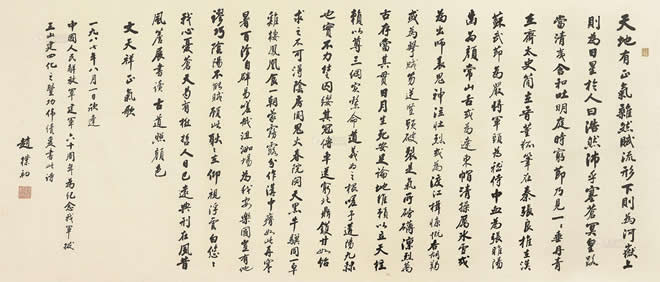 天地有正氣雜然賦流形下則為河嶽上
則為日星於人曰浩然沛乎塞蒼冥皇路
當清夷含和吐明庭時窮節乃見一一垂丹青
在齊太史簡在晉董狐筆在秦張良椎在漢
蘇武節為嚴將軍頭為嵇侍中血為張睢陽
齒為顏常山舌或為遼東帽清操厲冰雪或
為出師表鬼神泣壯烈或為渡江楫慷慨吞胡羯
或為擊賊笏逆豎頭破裂是氣所磅礴凜烈萬
古存當其貫日月生死安足論地維賴以立天柱
賴以尊三綱實繫命道義為之根嗟予遘陽九隸
也實不力楚囚纓其冠傳車送窮北鼎鑊甘如飴
求之不可得陰房闃鬼火春院閟天黑牛驥同一皁
雞棲鳳凰食一朝蒙霧露分作溝中瘠如此再寒
暑百沴自辟易嗟哉沮洳場為我安樂國豈有他
繆巧陰陽不能賊顧此耿耿在仰視浮雲白悠悠
我心憂蒼天曷有極哲人日已遠典刑在夙昔
風簷展書讀古道照顏色
文天祥正氣歌
一九八七年八月一日欣逢
中國人民解放軍建軍六十周年為紀念我軍拔
三山建四化之豐功偉績書此詩
趙樸初